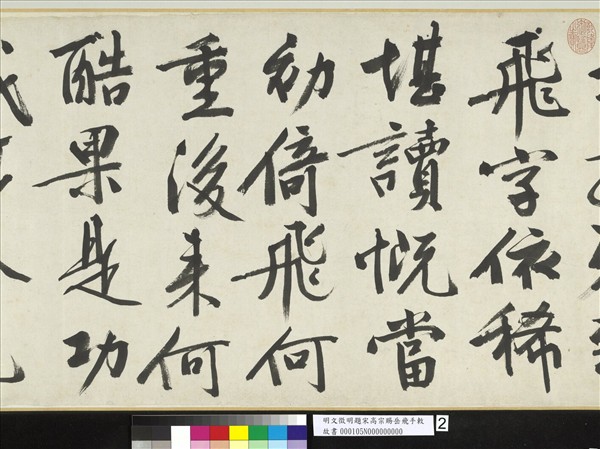 飛字依稀
堪讀慨當
初倚飛何
重後來何
酷果是功
明文徵明題宋高宗賜岳飛手敕
故書 000105N000000000
2